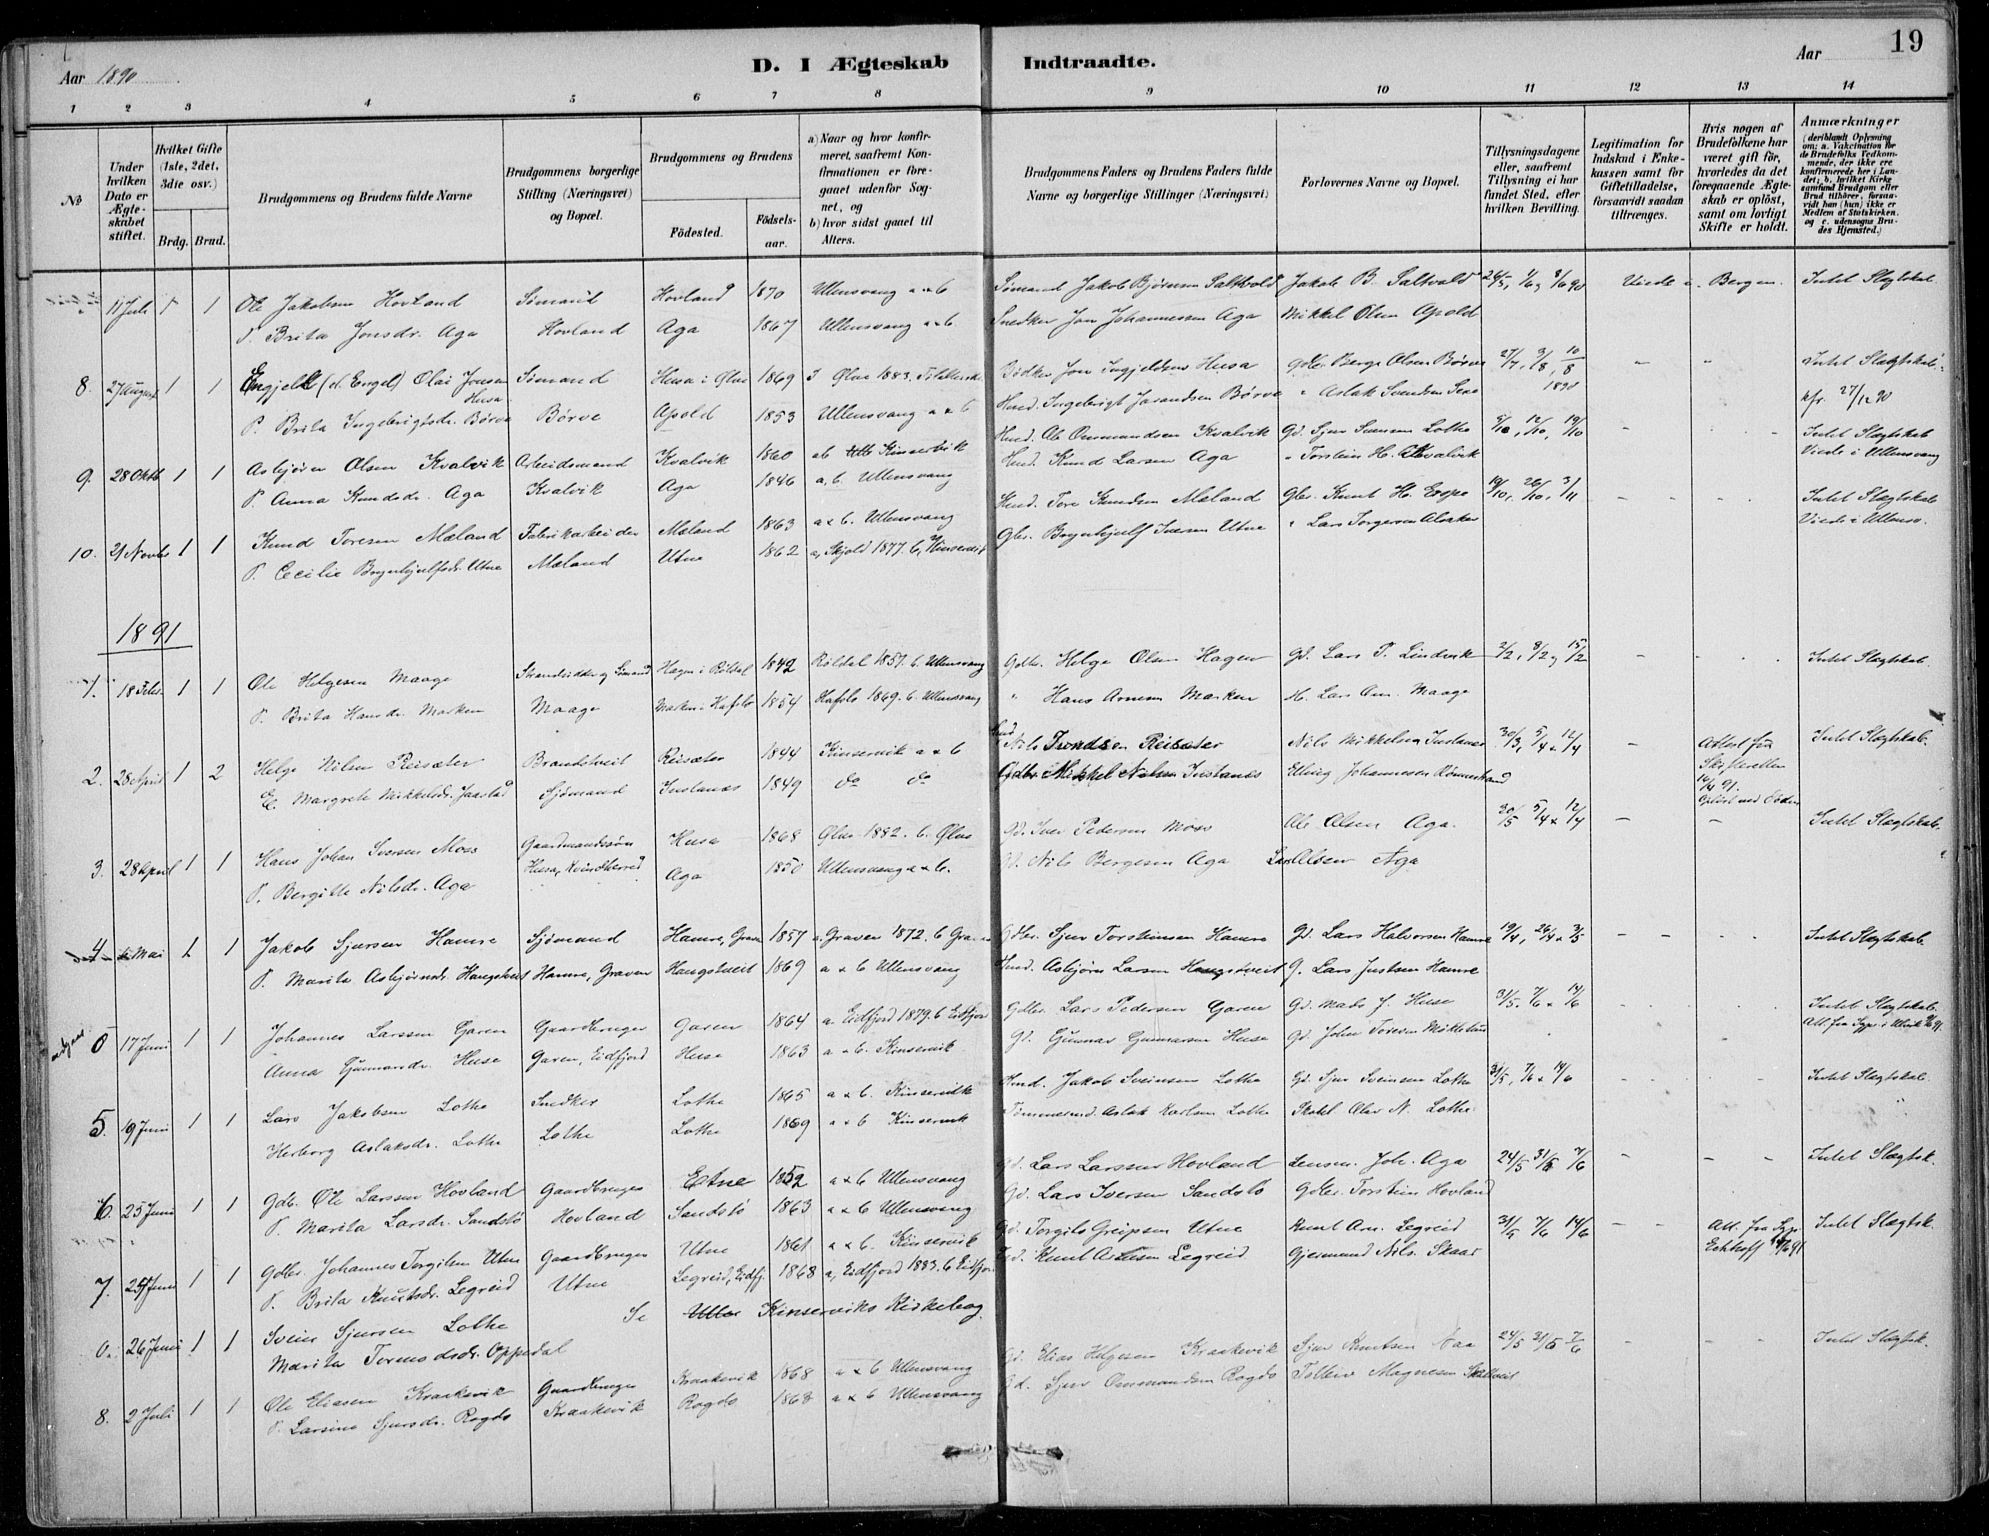 Aar 1890
D. I Ægteskab Indtraadte.
Aar
19
1 2 3 4 5 6 7 8 9 10 11 12 13 14
No
Under hvilken Dato er Ægteskabet stiftet.
Hvilket Gifte (1ste, 2det, 3die osv.)
Brdg. Brud.
Brudgommens og Brudens fulde Navne
Brudgommens borgerlige Stilling (Næringsvei) og Bopæl.
Brudgommens og Brudens
Fødested.
Fødsels-aar.
a) Naar og hvor konfirmeret, saafremt Konfirmationen er foregaaet udenfor Sognet, og
b) hvor sidst gaaet til Alters.
Brudgommens Faders og Brudens Faders fulde Navne og borgerlige Stillinger (Næringsvei)
Forlovernes Navne og Bopæl.
Tillysningsdagene eller, saafremt Tillysning ei har fundet Sted, efter hvilken Bevilling.
Legitimation for Indskud i Enkekassen samt for Giftetilladelse, forsaavidt saadan tiltrænges.
Hvis nogen af Brudefolkene har været gift før, hvorledes da det foregaaende Ægteskab er opløst, samt om lovligt Skifte er holdt.
Anmærkninger (deriblandt Oplysning om: a. Vakcination for de Brudefolks Vedkommende, der ikke ere konfirmerede her i Landet; b. hvilket Kirkesamfund Brudgom eller Brud tilhører, forsaavidt han (hun) ikke er Medlem af Statskirken, og c. udensogns Brudes Hjemsted.)
11 Juli 1 1 Ole Jakobsen Hovland Sømand Hovland 1870 Ullensvang a & b Sømand Jakob Bjørnsen Saltvold Jakob B. Saltvold 26/5, 1/6, 8/6 90 Viede i Bergen. Intet Slægtskab
P. Brita Jonsdr. Aga Hovland Aga 1867 Ullensvang a & b Snedker Jon Johannessen Aga Mikkel Olsen Apold
8. 27 August 1 1 Engjell (el. Engel) Olai Jonsen Husa Sømand Husa i Ølve 1869 Ølve 1883. Bødker Jon Ingjeldsen Husa Gdbr. Berge Olsen Børve 27/7, 3/8, 10/8 1890 - - Intet Slægtskab
P. Brita Ingebrigtsdr. Børve Børve Apold 1853 Ullensvang a & b Husd. Ingebrigt Jorandsen Børve " Aslak Svendsen Sexe kfr. 27/12 90
9. 28 Oktb 1 1 Asbjørn Olsen Kvalvik Arbeidsmand Kvalvik 1860 ab Kinservik Husd. Ole Ommundsen Kvalvik Gd. Sjur Samsen Lothe 5/10, 12/10, 19/10 - - Intet Slægtskab
P. Anna Knudsdr. Aga Kvalvik Aga 1846 a, b. Ullensvang Husd. Knud Larsen Aga " Torstein H. Kvalvik Viede i Ullensvang
10. 21 Novbr 1 1 Knud Toresen Mæland Fabrikarbeider Mæland 1863 a & b. Ullensvang Husd. Tore Knudsen Mæland Gbr. Knut H. Espe 19/10, 26/10, 3/11 - - Intet Slægtskab
P. Cecilie Brynhjulfsdr. Utne Mæland Utne 1862 a, Skjold 1877. b, Kinservik Gbr. Brynhjulf Iversen Utne " Lars Torgersen Alsaker Viede i Ullensv.
1891
1. 18 Febr. 1 1 Ole Helgesen Maage Strandsidder og Sømand Hagen i Røldal 1842 Røldal 1857. b. Ullensvang Gdbr. Helge Olsen Hagen Gd. Lars P. Lindvik 2/2, 8/2, 15/2 - - Intet Slægtskab
P. Brita Hansdr. Marken Maage Marken i Hafslo 1854 Hafslo 1869. b. Ullensvang " Hans Arnesen Marken H. Lars Am. Maage
2. 28 April 1 2 Helge Nilsen Reisæter Brandstveit Reisæter 1844 Kinservik a & b Husd Nils Reisæter Nils Mikkelsen Instanes 30/3, 5/4 & 12/4 - Attest fra Skifteretten 14/4 91. Opløst ved Døden Intet Slægtskab.
E. Margrete Mikkelsdr. Jaastad Sjømand Instanæs 1849 do do Gdbr. Mikkel Nilsen Instanæs Elling Johannesen Rønnestrand
3. 28 April 1 1 Hans Johan Iversen Moss Gaardmandssøn Husa 1868 Ølve 1882. b. Ølve Gd. Iver Pedersen Moss Ole Olsen Aga. 30/5 5/4 & 12/4 - - Intet Slægtskab.
P. Bergitte Nilsdr. Aga Husa, Kvindherred Aga 1850 Ullensvang a & b. Gd. Nils Bergesen Aga Lars Olsen Aga
4 Mai 1 1 Jakob Sjursen Hamre Sjømand Hamre, Graven 1857 a. Graven 1872. b Graven Gdbr. Sjur Torsteinsen Hamre Gd. Lars Halvorsen Hamre 19/4, 26/4 & 3/5 - - - Intet Slægtskab.
P. Marita Asbjørnsdr. Haugstveit Hamre, Graven Haugstveit 1869 a & b Ullensvang Husd. Asbjørn Larsen Haugstveit G. Lars Justsen Hamre
0 17 Juni 1 1 Johannes Larssen Garen Gaardbruger Garen 1864 a. Eidfjord 1879. b Eidfjord Gdbr. Lars Pedersen Garen Gd. Mads J. Huse 31/5. 7/6 & 14/6 Intet Slægtskab.
Anna Gunnarsdr. Huse Garen, Eidfjord Huse 1863 a & b. Kinservik Gd. Gunnar Gunnarsen Huse Gd. John Toresen Midthun
5. 19 Juni 1 1 Lars Jakobsen Lothe Snedker Lothe 1865 a & b. Kinservik Husd. Jakob Sveinsen Lothe Gd. Sjur Sveinsen Lothe 31/5, 7/6 & 14/6 Intet Slægtskab.
Herborg Aslaksdr. Lothe Lothe Lothe 1869 a & b Kinservik Tømmermd. Aslak Karlsen Lothe Olav N. Lothe
6. 25 Juni 1 1 Gdb. Ole Larssen Hovland Gaardbruger Etne 1852 a & b Ullensvang Gd. Lars Larssen Hovland Lensm. Joh. Aga 24/5 31/5 7/6 - - - Intet Slægtsk.
P. Marita Larsdr. Sandstø Hovland Sandstø 1863 a & b Ullensvang Gd. Lars Iversen Sandstø Gdbr. Torstein Hovland
7. 25 Juni 1 1 Gdbr. Johannes Torgilsen Utne Gaardbruger Utne 1861 a & b. Kinservik Gd. Torgils Greipsen Utne Knut Am. Legreid 31/5 7/6 14/6 - - Att. fra Sogn. Eckhoff 14/6 91 Intet Slægtsk.
P. Brita Knutsdr. Legreid Utne Legreid, Eidfj. 1868 a, Eidfjord 1883. b Eidfjor Gd. Knut Amsen Legreid Gjermund Nils. Skaar
0. 26 Juni 1 1 Svein Sjursen Lothe Se Kinserviks Kirkebog
Marita Tormodsdr. Oppedal
8. 2 Juli 1 1 Ole Eliasen Kraakevik Gaardbruger Kraakevik 1868 a & b Ullensvang Gd. Elias Helgesen Kraakevik Sjur Knutsen Naa 24/5 31/5 7/6 - - - Intet Slægtsk.
P. Larsine Sjursdr. Rogdo Kraakevik Rogdo 1863 a & b Ullensvang Gd. Sjur Ommundsen Rogdo Tolleiv Magnesen